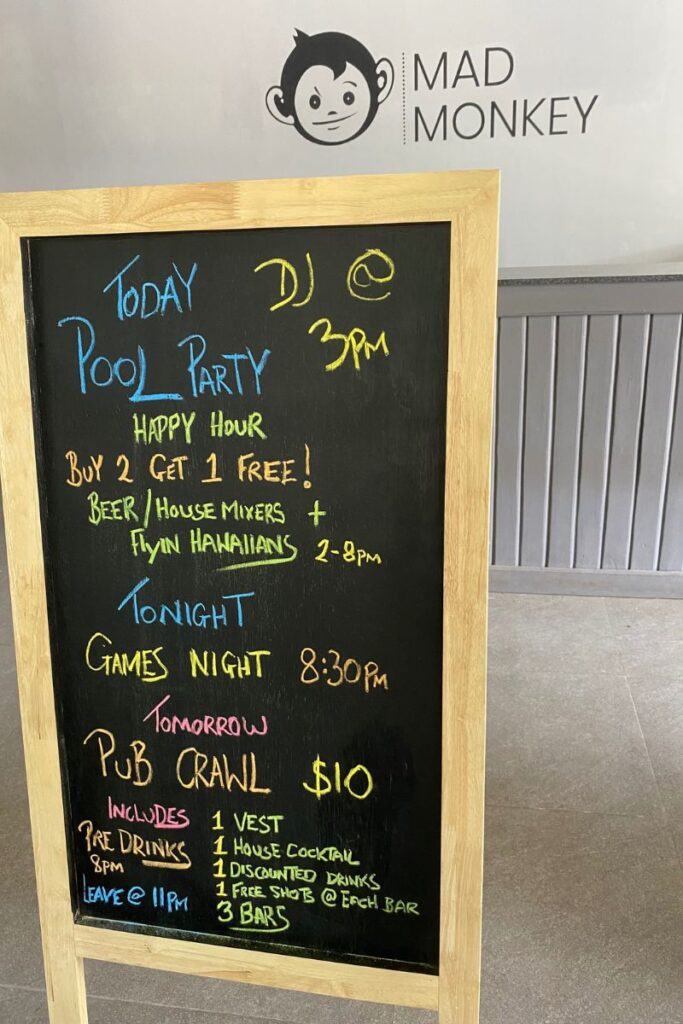 MAD
MONKEY
TODAY
DJ @
3PM
POOL PARTY
HAPPY HOUR
BUY 2 GET 1 FREE!
BEER/HOUSE MIXERS +
FlyIN HAWAIIANS 2-8PM
TONIGHT
GAMES NIGHT 8:30PM
TOMORROW
PUB CRAWL $10
INCLUDES
PRE DRINKS
8PM
LEAVE @ 11PM
1 VEST
1 HOUSE COCKTAIL
1 DISCOUNTED DRINKS
1 FREE SHOTS @ EACH BAR
3 BARS